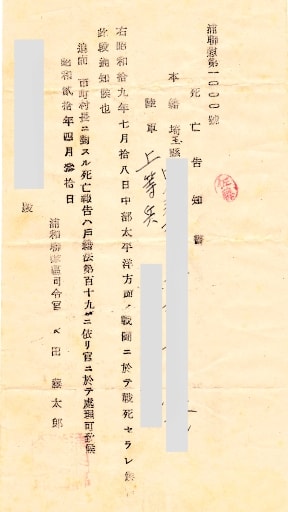 浦聯報第一〇〇〇號
死亡告知書
本籍 埼玉縣
陸軍 上等兵
右昭和拾九年七月拾八日中部太平洋方面ノ戰鬪ニ於テ戰死セラレ候
此段通知候也
追而 市町村長ニ對スル死亡報告ハ戸籍法第百十九條ニ依リ官ニ於テ處理可致候
昭和貳拾年四月參拾日
浦和聯隊區司令官 田藤太郎
殿